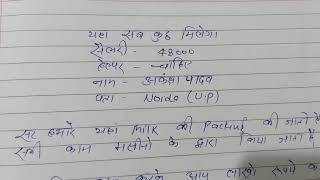 यहा सब कुछ मिलेगा
सैलरी - 48000
हेल्पर - चाहिए
नाम - आकांक्षा यादव
पता - Noida (U.P)
सर हमारे यहां Milk की Packing की जाती है
सभी काम मशीनों के द्वारा किया जाता है
काम करके आप लाखो रूपये क